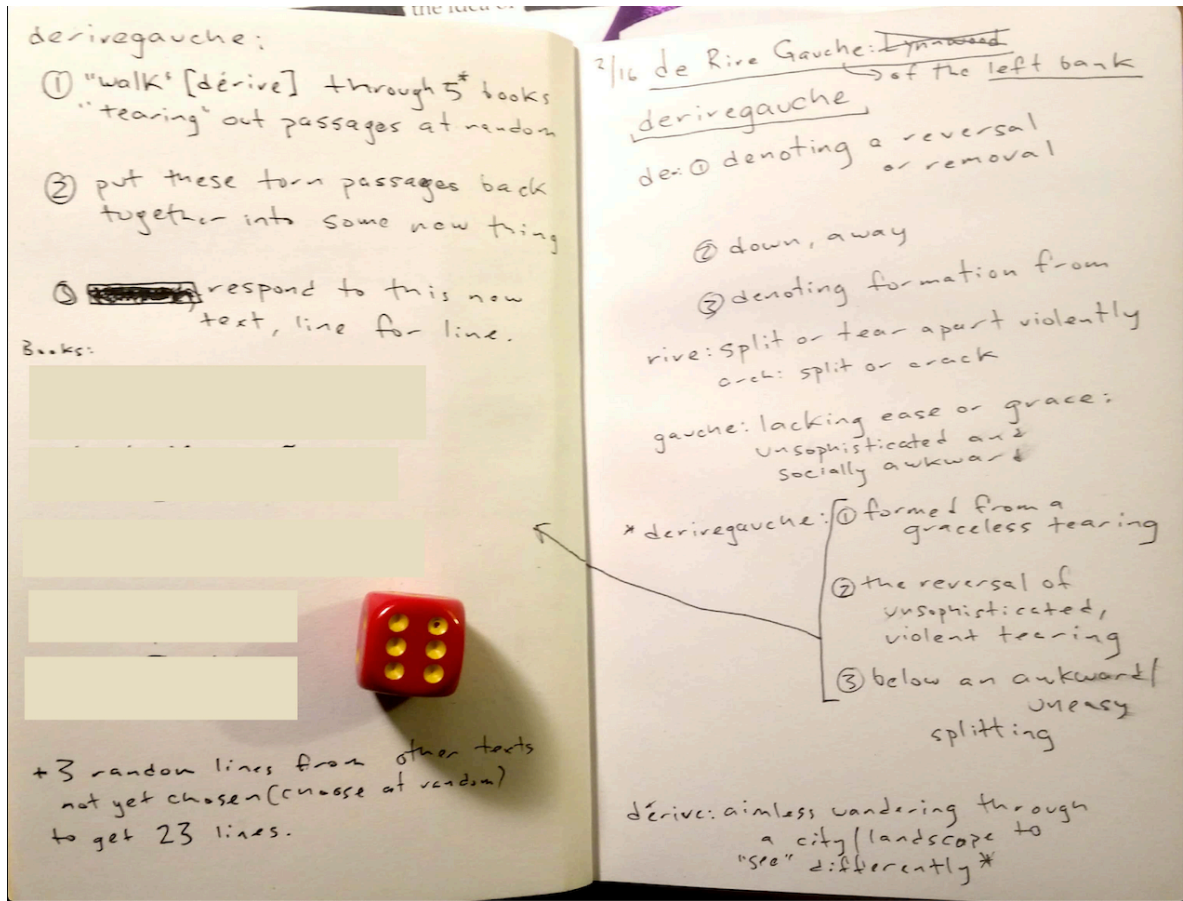 the idea of
derivegauche:
① "walk" [dérive] through 5* books
"tearing" out passages at random
② put these torn passages back
together into some new thing
③ respond to this new
text, line for line.
Books:
+3 random lines from other texts
not yet chosen (choose at random)
to get 23 lines.
2/16 de Rive Gauche: Lynnwood
of the left bank
derivegauche
de: ① denoting a reversal
or removal
② down, away
③ denoting formation from
rive: split or tear apart violently
arch: split or crack
gauche: lacking ease or grace:
unsophisticated and
socially awkward
* derivegauche: ① formed from a
graceless tearing
② the reversal of
unsophisticated,
violent tearing
③ below an awkward/
uneasy
splitting
dérive: aimless wandering through
a city/landscape to
"see" differently*